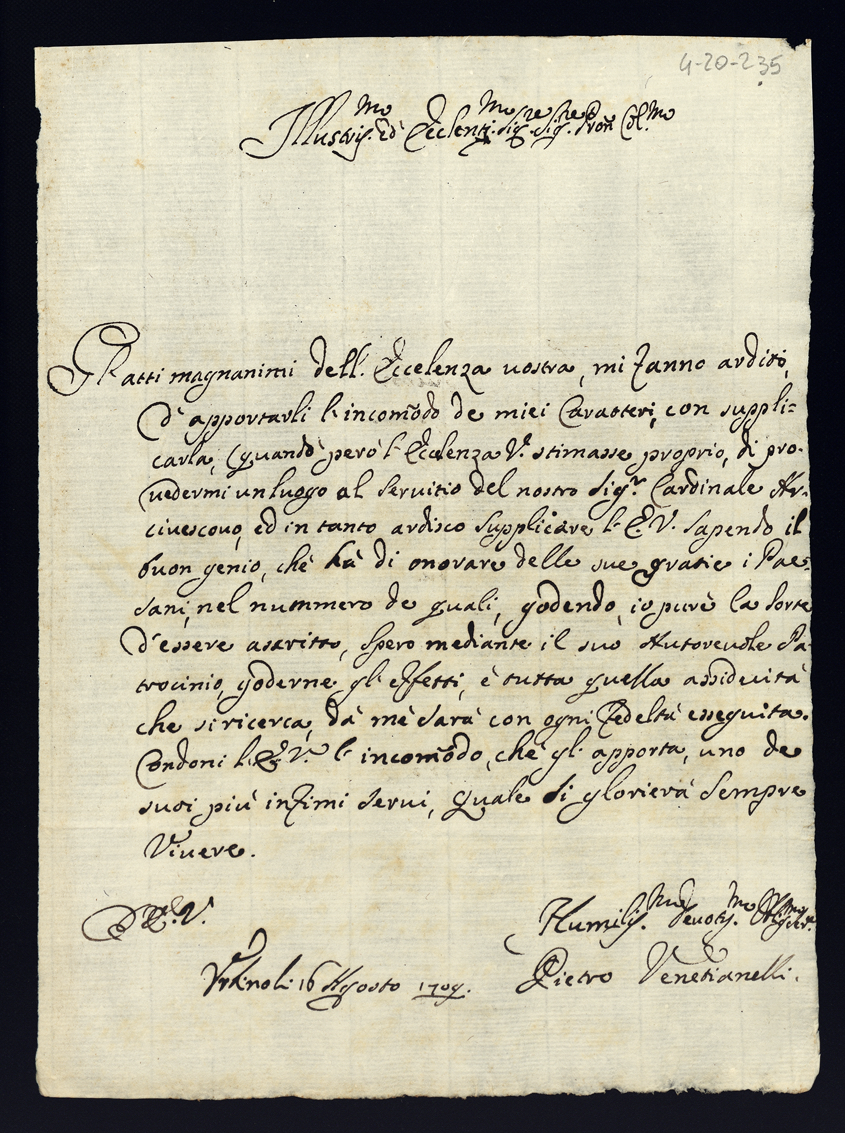 4-20-235
Illustris.mo ed Eccelentis.mo Sig.re Sig.re Pron Col.mo
Gl'atti magnanimi dell'Eccelenza vostra, mi fanno ardito,
d'apportarli l'incommodo de miei Caratteri, con suppli=
carla, (quando però l'Eccelenza V.ra stimasse proprio, di pro-
vedermi un luogo al servitio del nostro Sig.r Cardinale Ar-
civescovo, ed in tanto ardisco supplicare l'E.V. sapendo il
buon genio, chè hà di onorare delle sue gratie i Pae-
sani, nel nummero de quali, godendo, io purè la sorte
d'essere ascritto, spero mediante il suo Autorevole Pa-
trocinio, goderne gl'effetti, è tutta quella assiduità
che si ricerca, dà mè sarà con ogni Fedeltà esseguita.
Condoni l'E.V. l'incommodo, chè gl'apporta, uno de
suoi più infimi servi, quale si glorierà sempre
Vivere.
D.E.V.
Humilis.mo Devotis.mo Oblig.mo Ser.re
16 Agosto 1709.
Pietro Venetianelli.